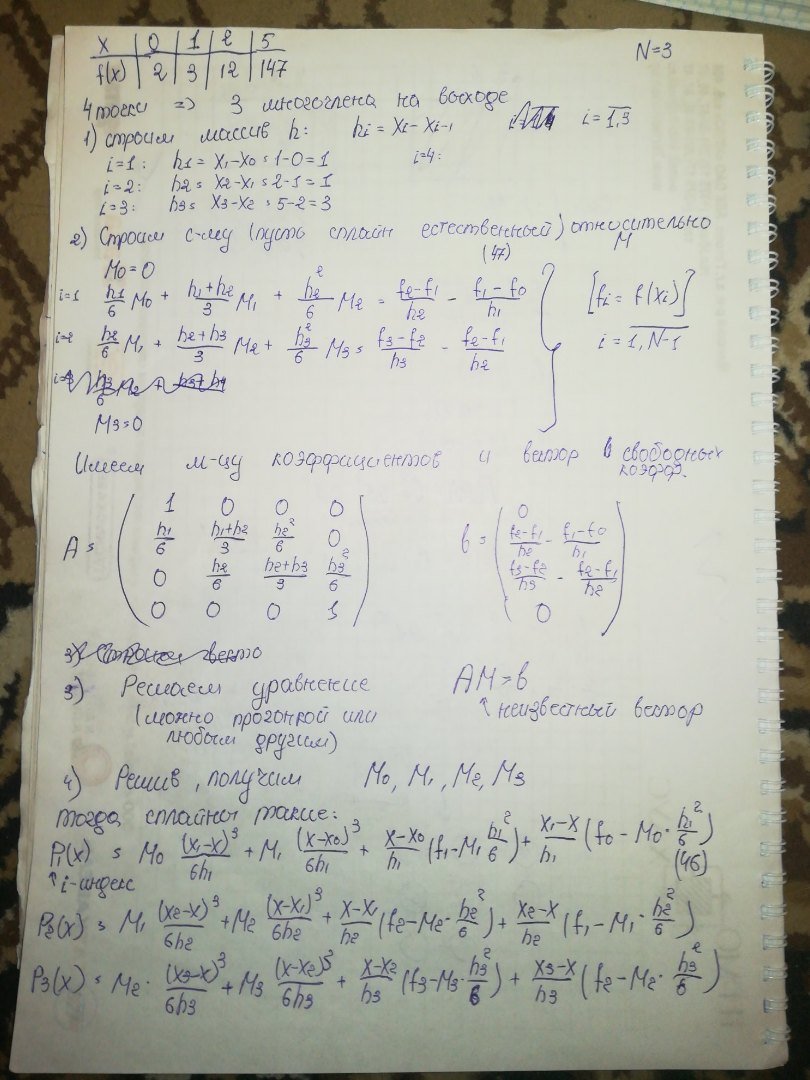 x | 0 | 1 | 2 | 5
f(x) | 2 | 3 | 12 | 147
N=3
4 точки => 3 многочлена на выходе
1) строим массив h: hi = xi - xi-1 i=1,3
i=1: h1 = x1-x0 = 1-0=1 i=4:
i=2: h2 = x2-x1 = 2-1=1
i=3: h3 = x3-x2 = 5-2=3
2) Строим с-му (пусть сплайн естественный) относительно M
(47)
M0=0
i=1 h1/6 M0 + (h1+h2)/3 M1 + h2²/6 M2 = (f2-f1)/h2 - (f1-f0)/h1 [fi = f(xi)]
i=2 h2/6 M1 + (h2+h3)/3 M2 + h3²/6 M3 = (f3-f2)/h3 - (f2-f1)/h2 i=1,N-1
M3=0
Имеем м-цу коэффициентов и вектор b свободных коэфф.
A = b =
1 0 0 0 0
h1/6 (h1+h2)/3 h2²/6 0 (f2-f1)/h2 - (f1-f0)/h1
0 h2/6 (h2+h3)/3 h3²/6 (f3-f2)/h3 - (f2-f1)/h2
0 0 0 1 0
3) Решаем уравнение AM=b
(можно прогонкой или ↑ неизвестный вектор
любым другим)
4) Решив, получим M0, M1, M2, M3
тогда сплайны такие:
P1(x) = M0 (x1-x)³/6h1 + M1 (x-x0)³/6h1 + (x-x0)/h1 (f1-M1 h1²/6) + (x1-x)/h1 (f0 - M0 · h1²/6)
↑ i-индекс (46)
P2(x) = M1 (x2-x)³/6h2 + M2 (x-x1)³/6h2 + (x-x1)/h2 (f2-M2 · h2²/6) + (x2-x)/h2 (f1-M1 · h2²/6)
P3(x) = M2 · (x3-x)³/6h3 + M3 (x-x2)³/6h3 + (x-x2)/h3 (f3-M3 · h3²/6) + (x3-x)/h3 (f2-M2 · h3²/6)